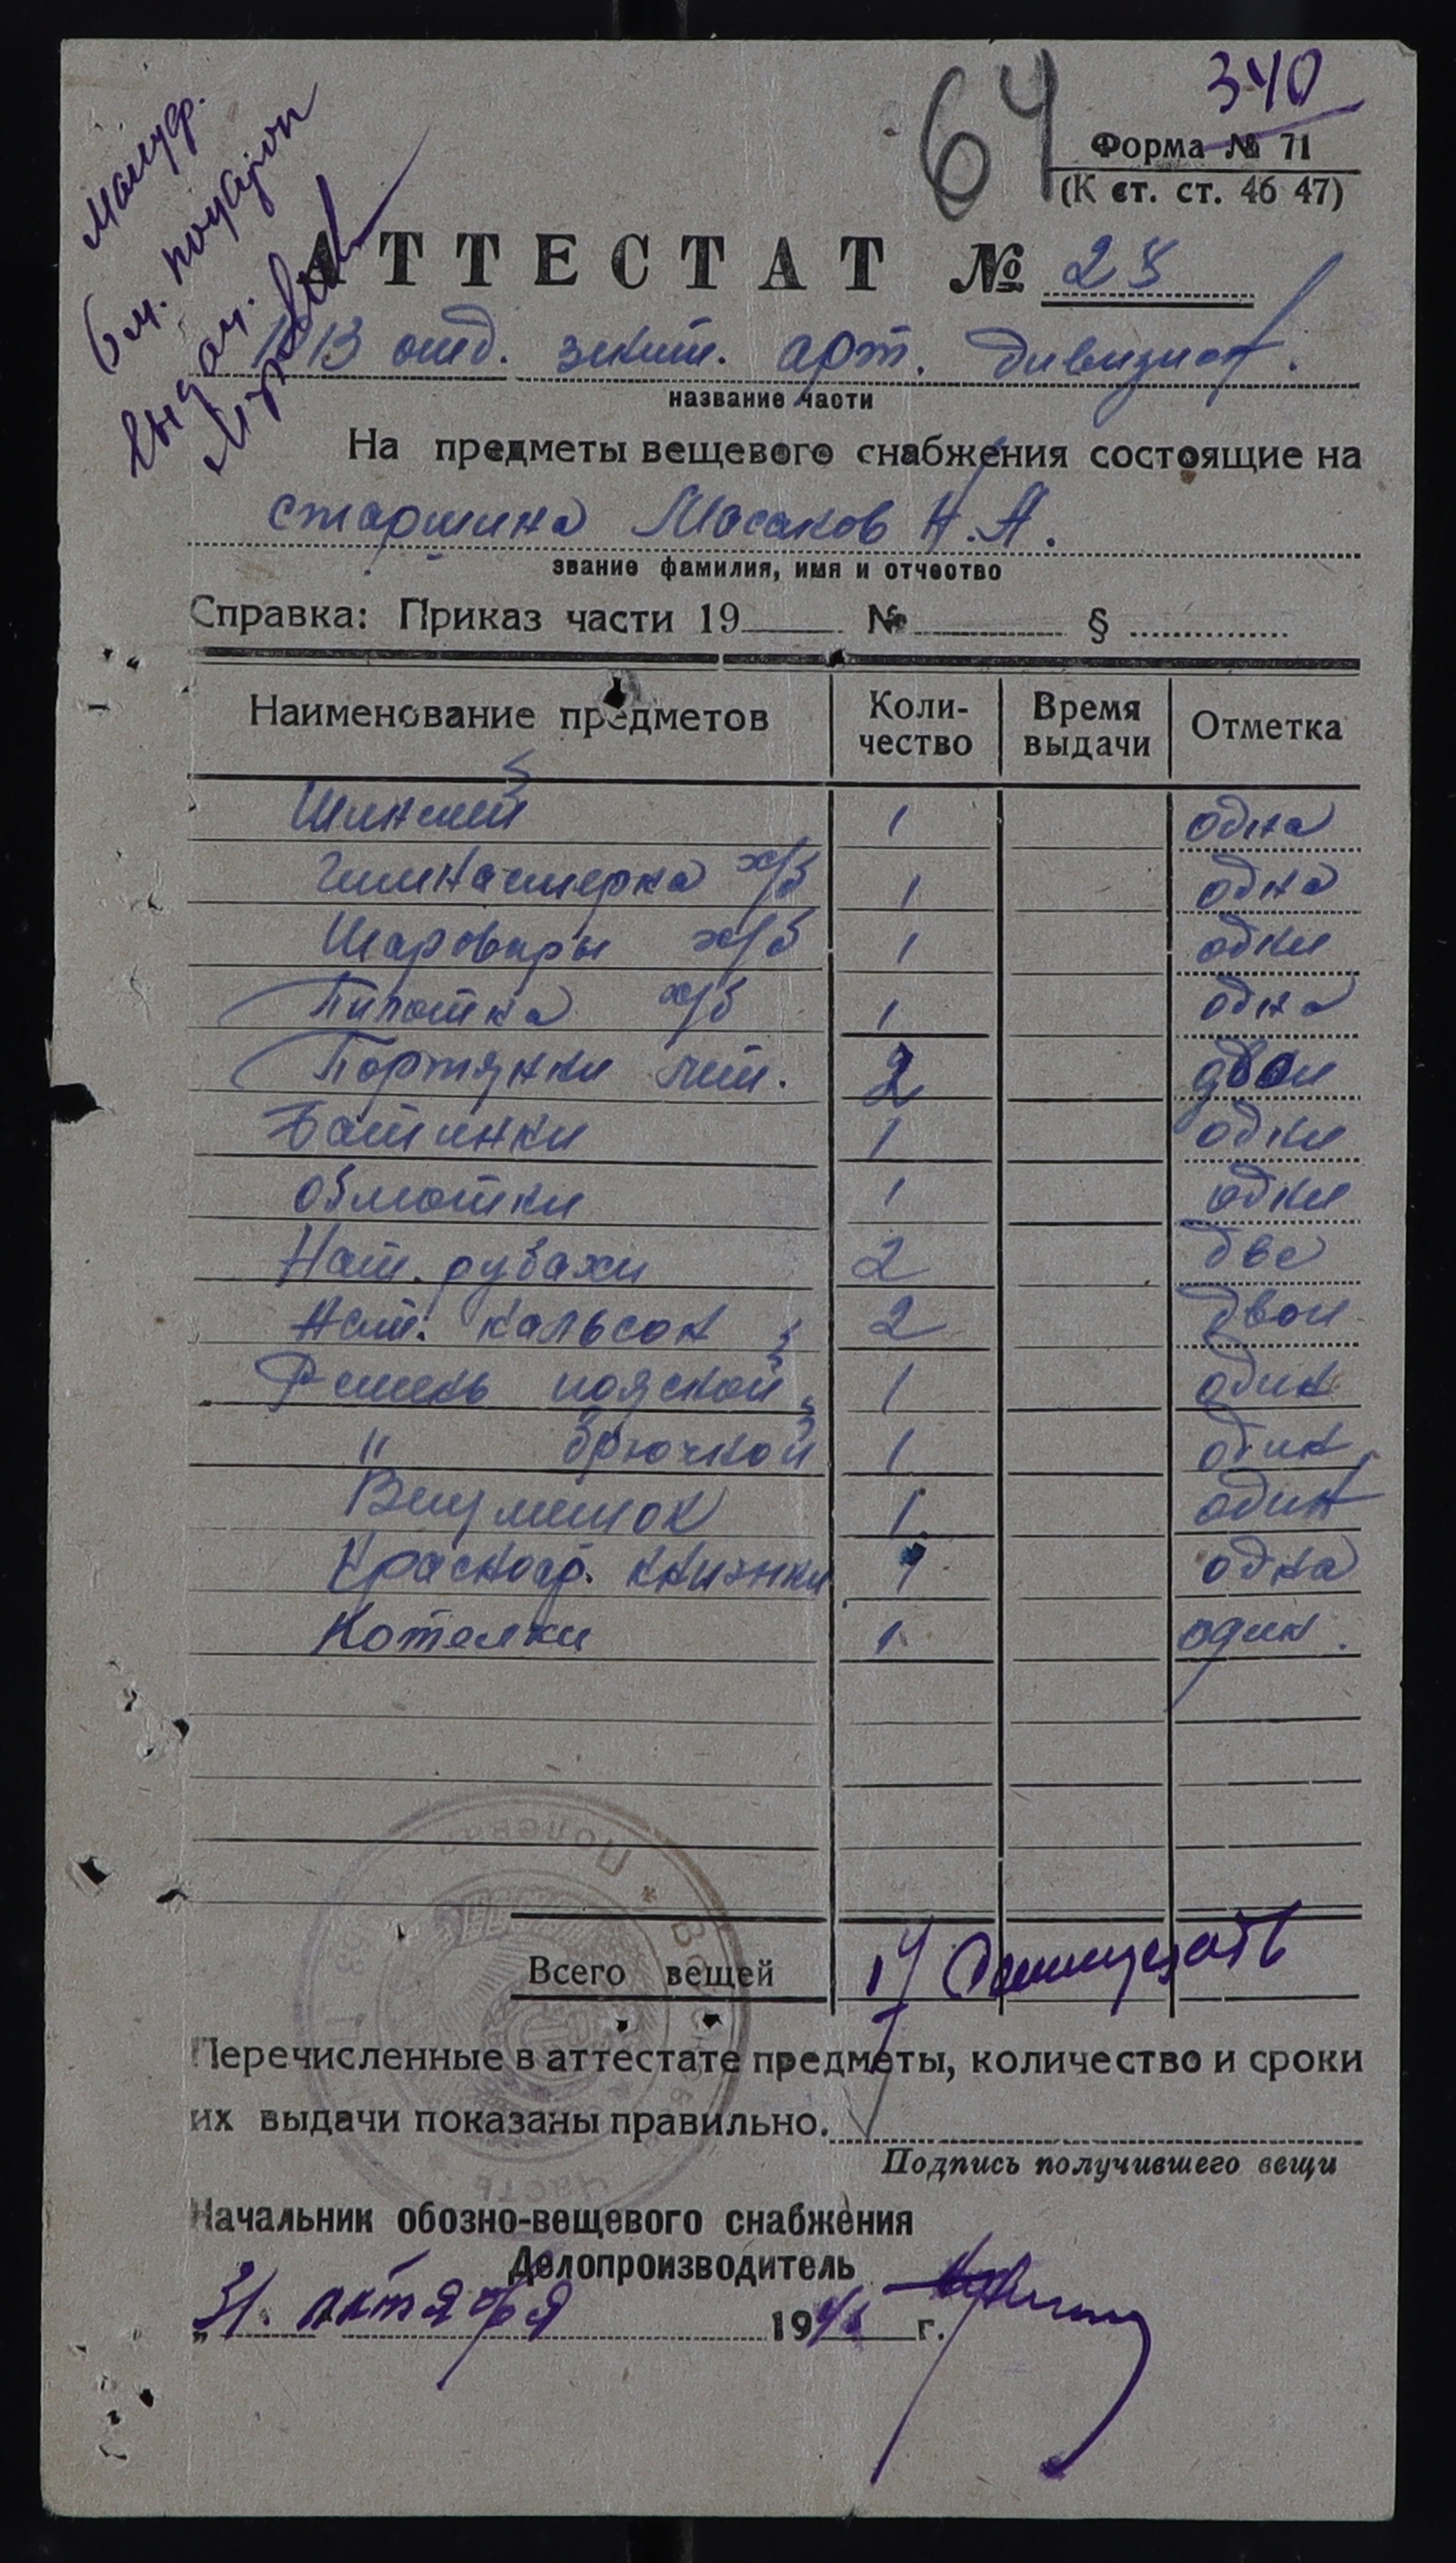 64
340
Форма № 71
(К ст. ст. 46 47)
Мануф.
6 м.
выдан.
АТТЕСТАТ №
13 отд. зенит. арт. дивизион.
название части
На предметы вещевого снабжения состоящие на
старшина Мосаков Н.А.
звание фамилия, имя и отчество
Справка: Приказ части 19 № §
Наименование предметов Коли-чество Время выдачи Отметка
Шинелей 1 одна
Гимнастерка х/б 1 одна
Шаровары х/б 1 одни
Пилотка х/б 1 одна
Портянки лет. 2 двои
Ботинки 1 одни
Обмотки 1 одни
Нат. рубахи 2 две
Нат. кальсон 2 двои
Ремень поясной 1 один
" брючной 1 один
Вещмешок 1 один
Красноар. книжки 1 одна
Котелки 1 один.
Всего вещей 17 Семнадцать
Перечисленные в аттестате предметы, количество и сроки
их выдачи показаны правильно.
Подпись получившего вещи
Начальник обозно-вещевого снабжения
Делопроизводитель
„31. октября 194 г.